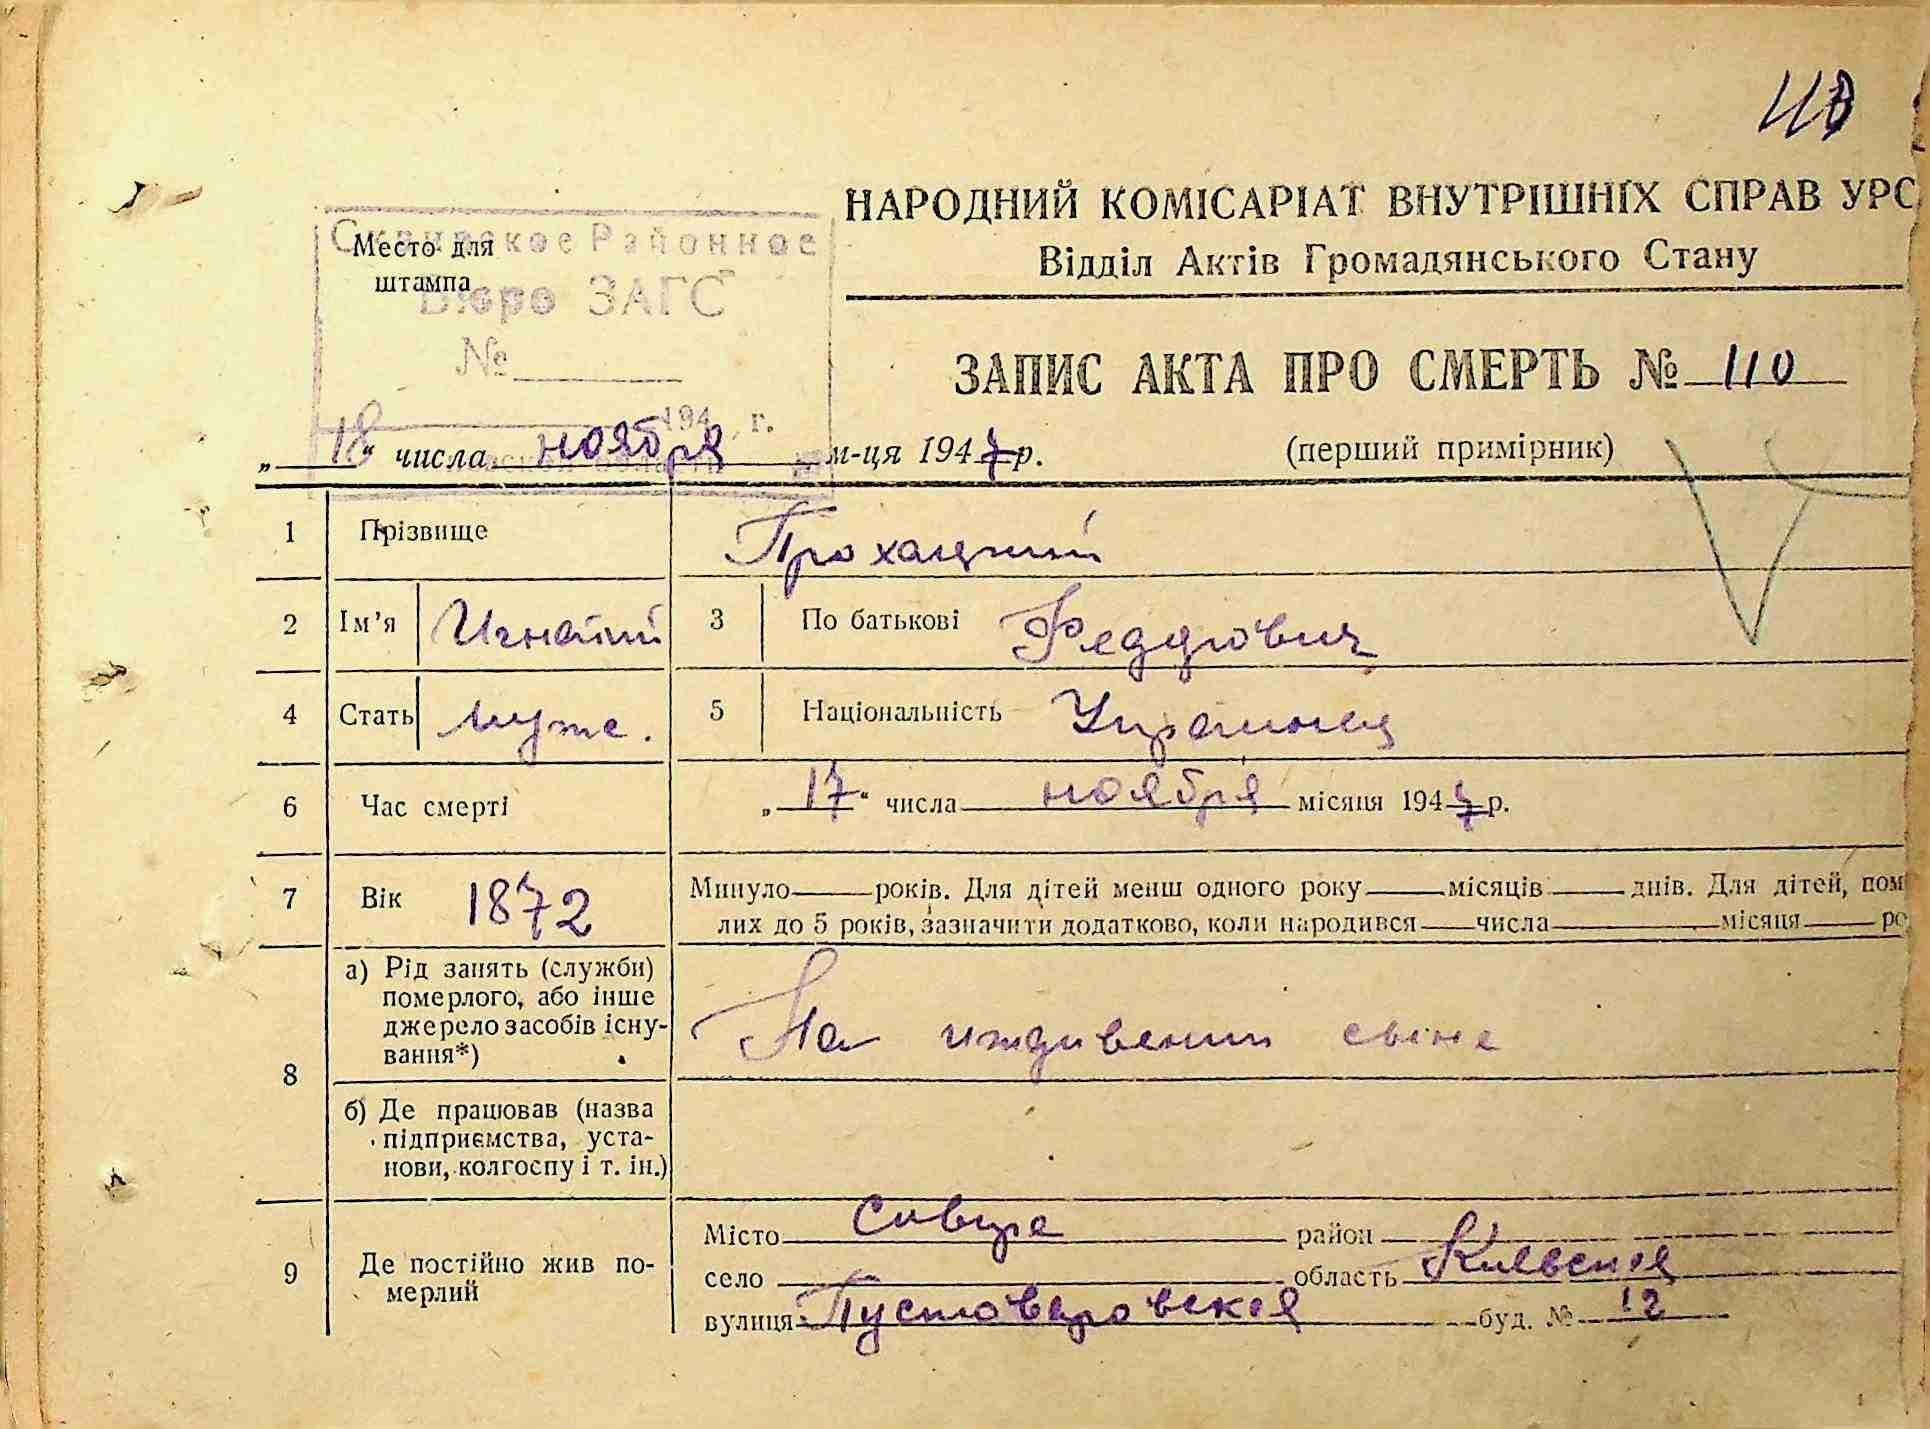 110
НАРОДНИЙ КОМІСАРІАТ ВНУТРІШНІХ СПРАВ УРС
Відділ Актів Громадянського Стану
Место для
штампа
Сквирское Районное
Бюро ЗАГС
№
194 г.
ЗАПИС АКТА ПРО СМЕРТЬ № 110
„18“ числа ноября м-ця 1947 р.
(перший примірник)
1 Прізвище Прохацкий
2 Ім’я Игнатий 3 По батькові Феддрович
4 Стать муже. 5 Національність Украинец
6 Час смерті „17“ числа ноября місяця 1947 р.
7 Вік 1872 Минуло років. Для дітей менш одного року місяців днів. Для дітей, пом
лих до 5 років, зазначити додатково, коли народився числа місяця ро
8 а) Рід занять (служби)
померлого, або інше
джерело засобів існу-
вання*)
На иждивении сына
б) Де працював (назва
підприємства, уста-
нови, колгоспу і т. ін.)
9 Де постійно жив по-
мерлий
Місто Сквире район
село область Киевская
вулиця Пустоваровская буд. № 12